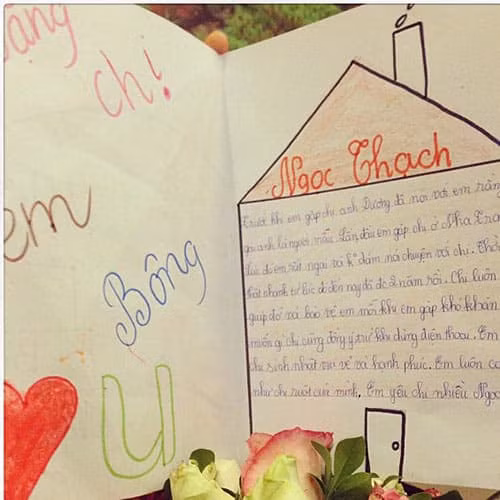 chị!
em
Bông
U
Ngọc Thạch
Trước khi em gặp chị anh Dương đã nói với em
gái anh là người mẫu. Lần đầu em gặp chị ở Nha
lúc đó em rất ngại và k° dám nói chuyện với chị.
thật nhanh từ lúc đó đến nay đã đc 2 năm rồi. Chị luôn
giúp đỡ và bảo vệ em mỗi khi em gặp khó khăn
muốn gì chị cũng đồng ý trừ khi dùng điện thoại. Em
chị sinh nhật vui vẻ và hạnh phúc. Em luôn
như chị ruột của mình. Em yêu chị nhiều Ngọc